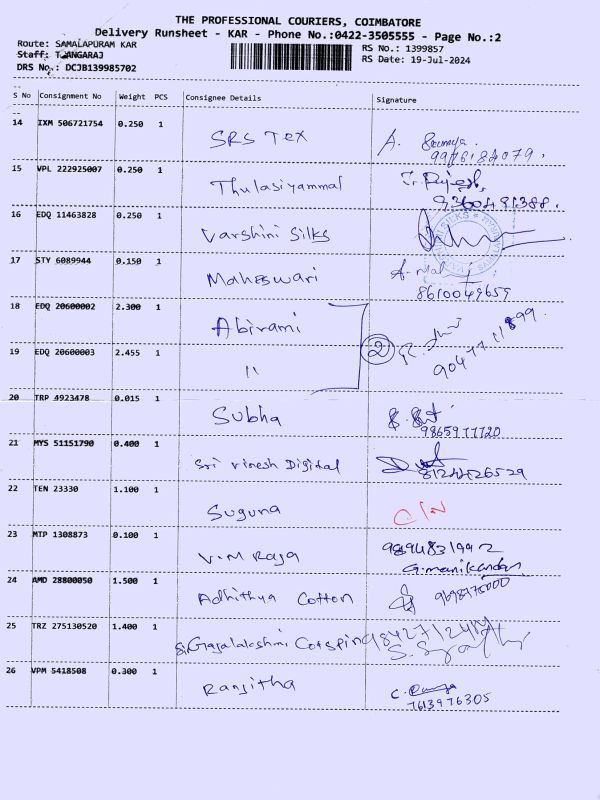 THE PROFESSIONAL COURIERS, COIMBATORE
Delivery Runsheet - KAR - Phone No.:0422-3505555 - Page No.:2
Route: SAMALAPURAM KAR RS No.: 1399857
Staff: RS Date: 19-Jul-2024
DRS No.: DCJB139985702
S No Consignment No Weight PCS Consignee Details Signature
14 IXM 506721754 0.250 1 SRS Tex A. Sowmya.
9976184079.
15 VPL 222925007 0.250 1 Thulasiyammal Rajesh.
9360491388.
16 EDQ 11463828 0.250 1 Varshini Silks
17 STY 6089944 0.150 1 Maheswari
8610049659
18 EDQ 20600002 2.300 1 Abirami
19 EDQ 20600003 2.455 1 " 2
20 TRP 4923478 0.015 1 Subha
9865977720
21 MYS 51151790 0.400 1 Sri Vinesh Digital
22 TEN 23330 1.100 1 Suguna C/N
23 MTP 1308873 0.100 1 V.M Raja
G.manikandan
24 AMD 28800050 1.500 1 Adhithya Cotton
25 TRZ 275130520 1.400 1 Sri Gajalakshmi Cotspin
26 VPM 5418508 0.300 1 Ranjitha C.
7613976305